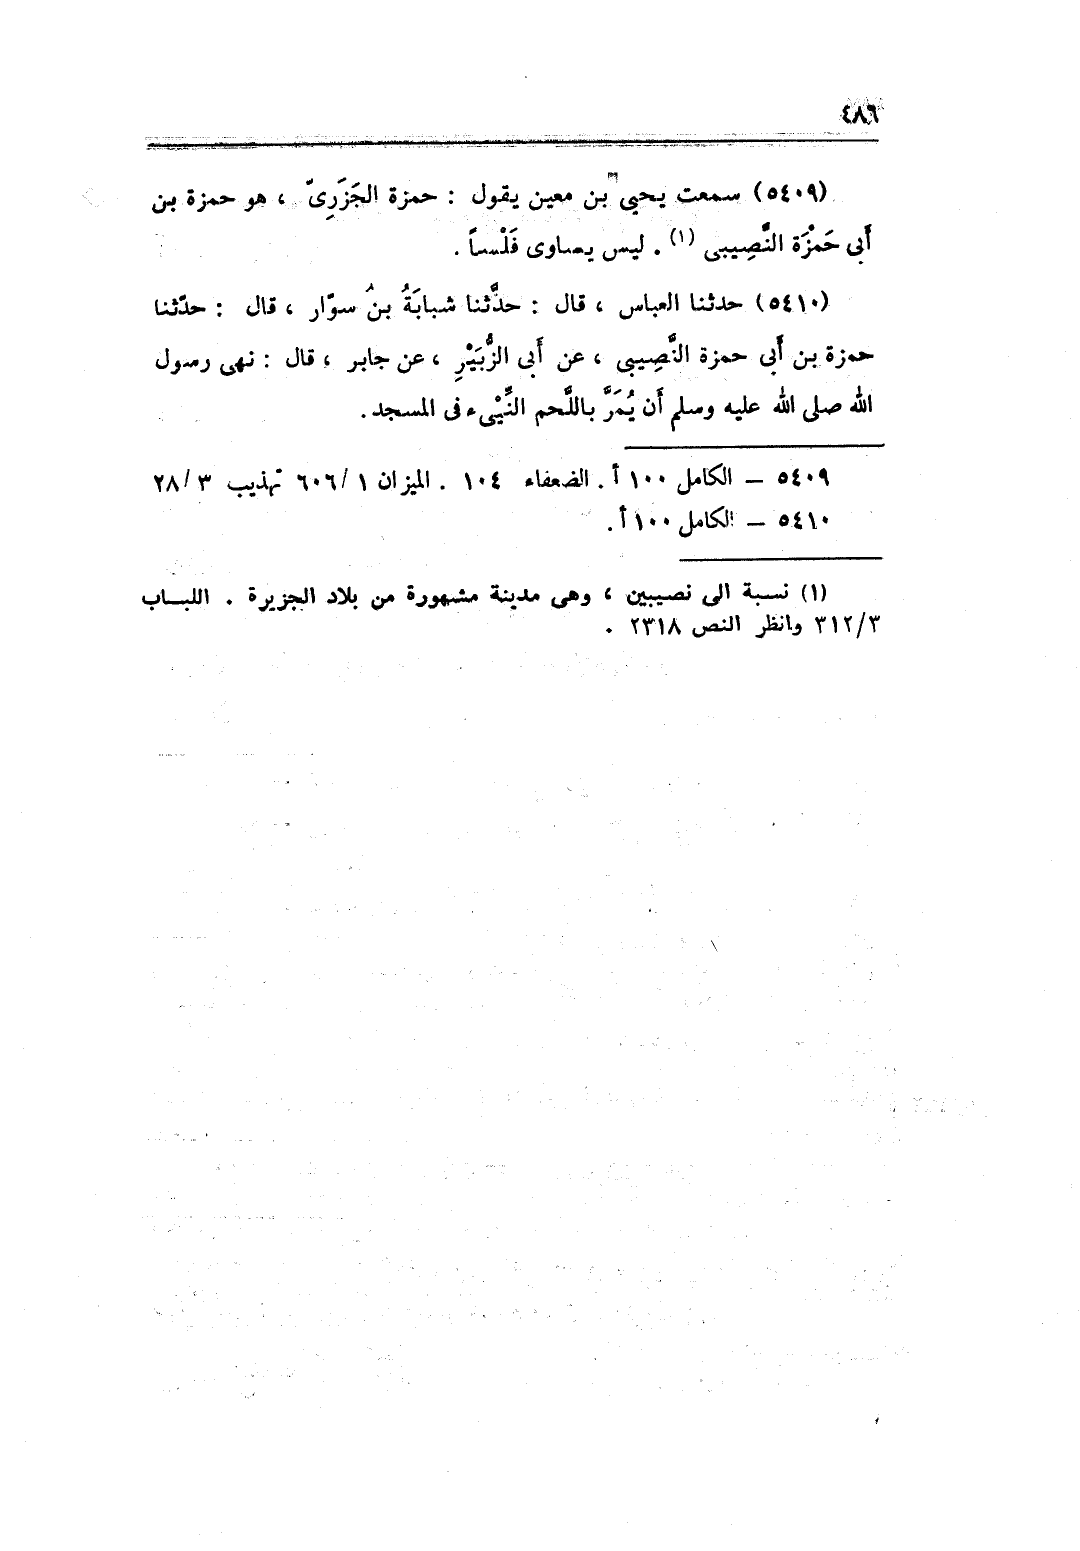 ٤٨٦
(٥٤٠٩) سمعت يحيى بن معين يقول : حمزة الجَزَرِىّ ، هو حمزة بن
أَبى حَمْزَة النَّصِيبى (١) . ليس يساوى فَلْساً .
(٥٤١٠) حدثنا العباس ، قال : حدَّثنا شبابَةُ بنُ سوّار ، قال : حدّثنا
حمزة بن أَبى حمزة النَّصِيبى ، عن أَبى الزُّبَيْرِ ، عن جابر ، قال : نهى رسول
الله صلى الله عليه وسلم أَن يُمَرَّ باللَّحم النِّيْىء فى المسجد .
٥٤٠٩ — الكامل ١٠٠ أ . الضعفاء ١٠٤ . الميزان ١/٦٠٦ تهذيب ٣/٢٨
٥٤١٠ — الكامل ١٠٠ أ .
(١) نسبة الى نصيبين ، وهى مدينة مشهورة من بلاد الجزيرة . اللباب
٣١٢/٣ وانظر النص ٢٣١٨ .